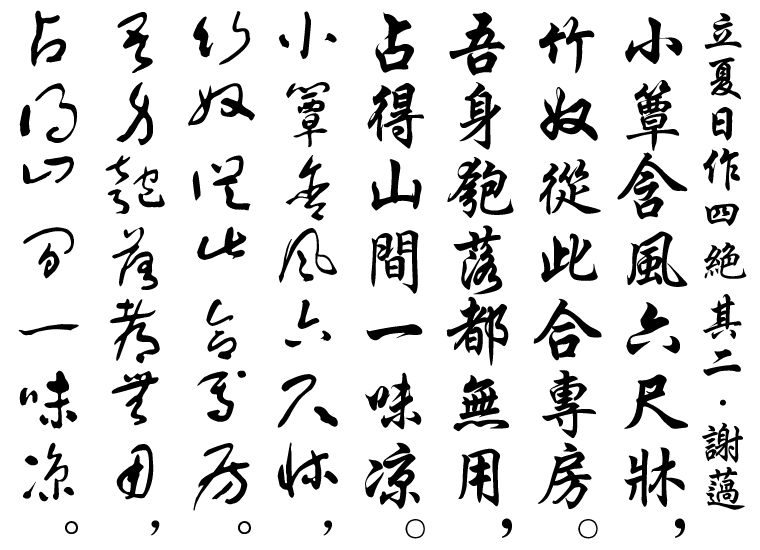 立夏日作四絕其二・謝薖
小簟含風六尺牀，
竹奴從此合專房。
吾身匏落都無用，
占得山間一味凉。
小簟含風六尺牀，
竹奴從此合專房。
吾身匏落都無用，
占得山間一味凉。